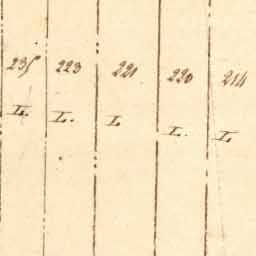 235 223 221 220 214
L. L. L L. L